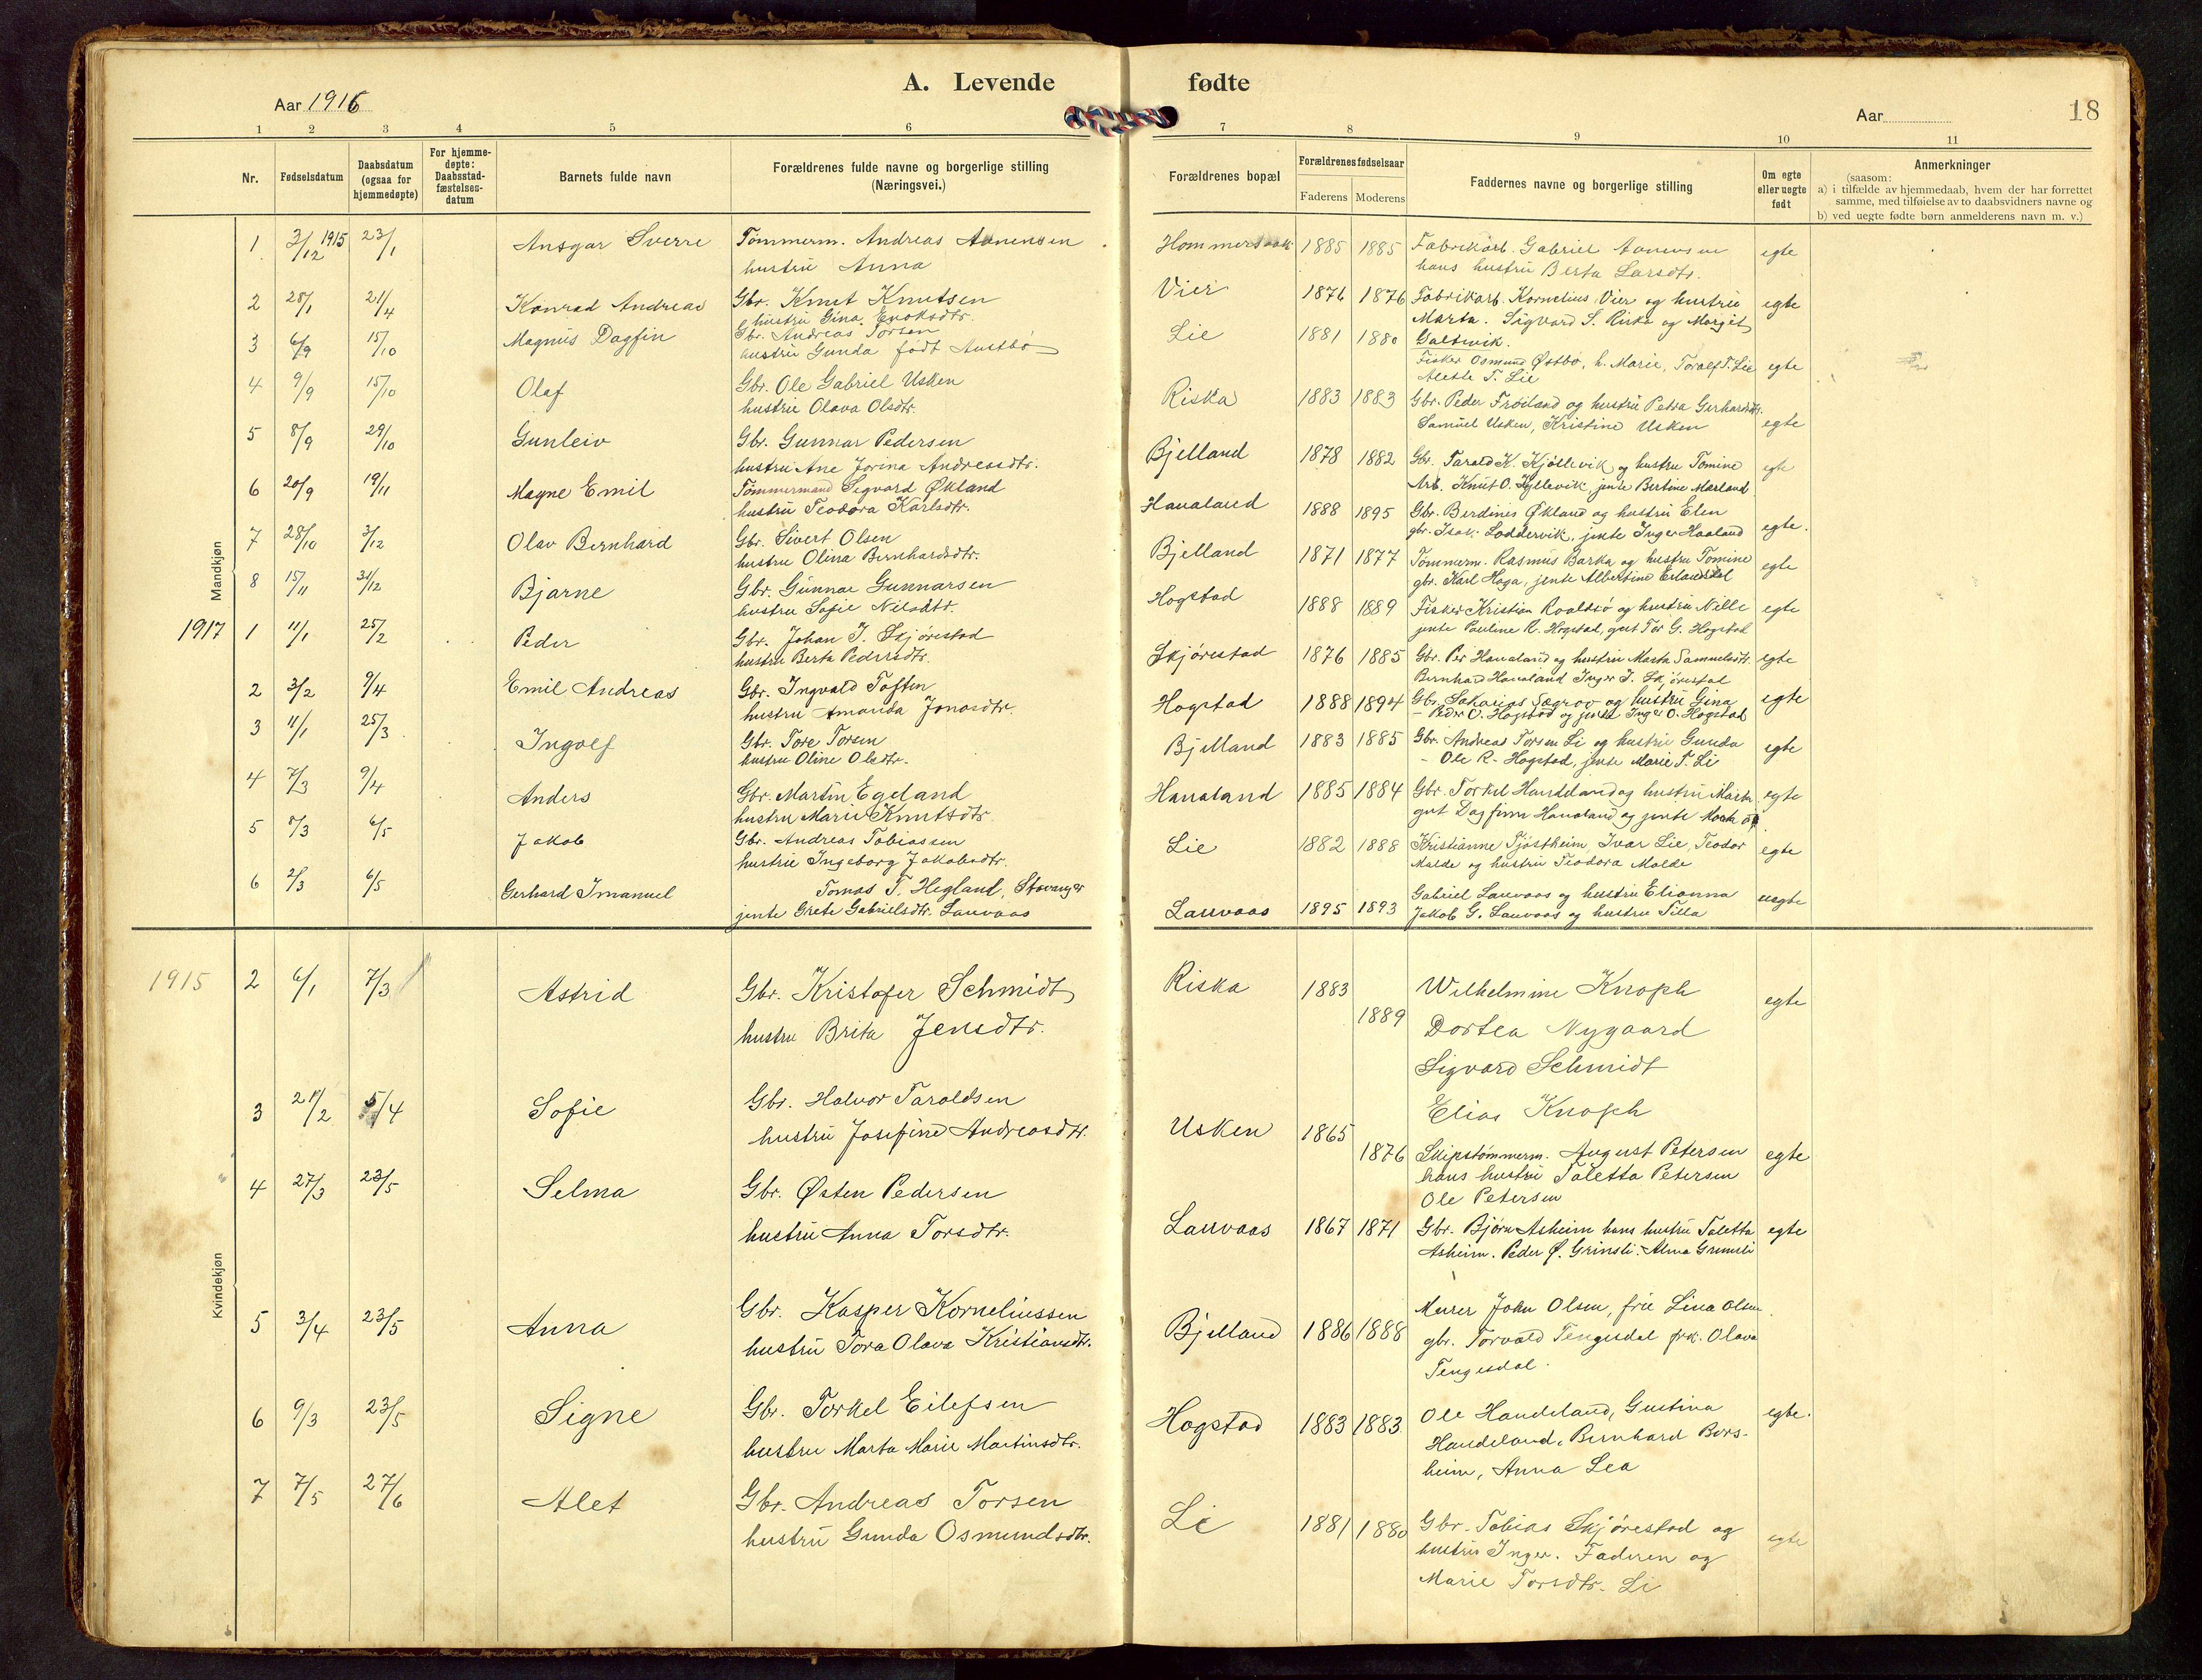 A. Levende fødte
Aar 1916
Aar
18
1 2 3 4 5 6 7 8 9 10 11
Nr.
Fødselsdatum
Daabsdatum (ogsaa for hjemmedøpte)
For hjemme-døpte: Daabsstad-fæstelses-datum
Barnets fulde navn
Forældrenes fulde navne og borgerlige stilling (Næringsvei.)
Forældrenes bopæl
Forældrenes fødselsaar
Faderens Moderens
Faddernes navne og borgerlige stilling
Om egte eller uegte født
Anmerkninger
(saasom:
a) i tilfælde av hjemmedaab, hvem der har forrettet
samme, med tilføielse av to daabsvidners navne og
b) ved uegte fødte børn anmelderens navn m. v.)
Mandkjøn
1 3/12 1915 23/1 Ansgar Sverre Tømmerm. Andreas Aanensen Hommersaak 1885 1885 Fabrikarb. Gabriel Aanensen egte
hustru Anna hans hustru Berta Larsdtr.
2 28/1 21/4 Konrad Andreas Gbr. Knut Knutsen Vier 1876 1876 Fabrikarb. Kornelius Vier og hustru egte
hustru Gina Enoksdtr. Marta. Sigvard S. Riska og Marget
Galtvik.
3 6/9 15/10 Magnus Dagfin Gbr. Andreas Torsen Lie 1881 1880 Fisker Osmund Østbø, h. Marie, Toralf T. Lie egte
hustru Gunda født Austbø Alette T. Lie
4 9/9 15/10 Olaf Gbr. Ole Gabriel Usken Riska 1883 1883 Gbr. Peder Frøiland og hustru Petra Gerhardsdtr. egte
hustru Olava Olsdtr. Samuel Usken, Kristine Usken
5 8/9 29/10 Gunleiv Gbr. Gunnar Pedersen Bjelland 1878 1882 Gbr. Tarald K. Kjøllevik og hustru Tomine egte
hustru Ane Jorina Andreasdtr. Arb. Knut O. Kyllevik, jente Bertine Marland
6 20/9 19/11 Magne Emil Tømmermand Sigvard Økland Hanaland 1888 1895 Gbr. Berdines Økland og hustru Elen egte.
hustru Teodora Karlsdtr. gbr. Isak Loddervik, jente Inger Haaland
7 28/10 3/12 Olav Bernhard Gbr. Sivert Olsen Bjelland 1871 1877 Tømmerm. Rasmus Barka og hustru Tomine egte
hustru Olina Bernhardsdtr. gbr. Karl Haga, jente Albertine Erlandsdal
8 15/11 31/12 Bjarne Gbr. Gunnar Gunnarsen Hogstad 1888 1889 Fisker Kristian Roaldsø og hustru Nille egte
hustru Sofie Nilsdtr. jente Pauline R. Hogstad, gut Tor G. Hogstad
1917 1 11/1 25/2 Peder Gbr. Johan J. Skjørestad Skjørestad 1876 1885 Gbr. Per Hanaland og hustru Marta Samuelsdtr. egte
hustru Berta Pedersdtr. Bernhard Hanaland Inger J. Skjørestad
2 3/2 9/4 Emil Andreas Gbr. Ingvald Toften Hogstad 1888 1894 Gbr. Sakarias Sægrov og hustru Gina egte
hustru Amanda Jonasdtr. - Peder O. Hogstad og jente Inger O. Hogstad
3 11/1 25/3 Ingolf Gbr. Tore Torsen Bjelland 1883 1885 Gbr. Andreas Torsen Li og hustru Gunda egte
hustru Oline Olsdtr. - Ole R. Hogstad, jente Marie T. Li
4 7/3 9/4 Anders Gbr. Martin Egeland Hanaland 1885 1884 Gbr. Torkel Handeland og hustru Marta egte
hustru Marie Knutsdtr. gut Dagfinn Hanaland og jente
5 8/3 6/5 Jakob Gbr. Andreas Tobiassen Lie 1882 1888 Kristianne Tjøstheim, Ivar Lie, Teodor egte
hustru Ingeborg Jakobsdtr. Malde og hustru Teodora Malde
6 2/3 6/5 Gerhard Imanuel Tomas T. Hegland, Stavanger Lauvaas 1895 1893 Gabriel Lauvaas og hustru Elianna uegte
jente Grete Gabrielsdtr. Lauvaas Jakob G. Lauvaas og hustru Tilla
Kvindekjøn
1915 2 6/1 7/3 Astrid Gbr. Kristofer Schmidt Riska 1883 1889 Wilhelmine Knoph egte
hustru Brita Jensdtr. Dortea Nygaard
Sigvard Schmidt
Elias Knoph
3 21/2 5/4 Sofie Gbr. Halvor Taraldsen Usken 1865 1876 Skipstømmerm. August Petersen egte
hustru Josefine Andreasdtr. hans hustru Taletta Petersen
Ole Petersen
4 27/3 23/5 Selma Gbr. Østen Pedersen Lauvaas 1867 1871 Gbr. Bjørn Asheim hans hustru Taletta egte
hustru Anna Torsdtr. Asheim. Peder Ø. Grinsli. Alma Grinsli
5 3/4 23/5 Anna Gbr. Kasper Korneliussen Bjelland 1886 1888 Murer John Olsen, frue Lina Olsen
hustru Tora Olava Kristiansdtr. gbr. Torvald Tengesdal frk. Olava
Tengesdal.
6 9/3 23/5 Signe Gbr. Torkel Eilefsen Hogstad 1883 1883 Ole Handeland, Gustina egte.
hustru Marta Marie Martinsdtr. Handeland, Bernhard Bors-
heim, Anna Lea
7 7/5 27/6 Alet Gbr. Andreas Torsen Li 1881 1880 Gbr. Tobias Skjørestad og egte
hustru Gunda Osmundsdtr. hustru Inger. Faderen og
Marie Torsdtr. Li